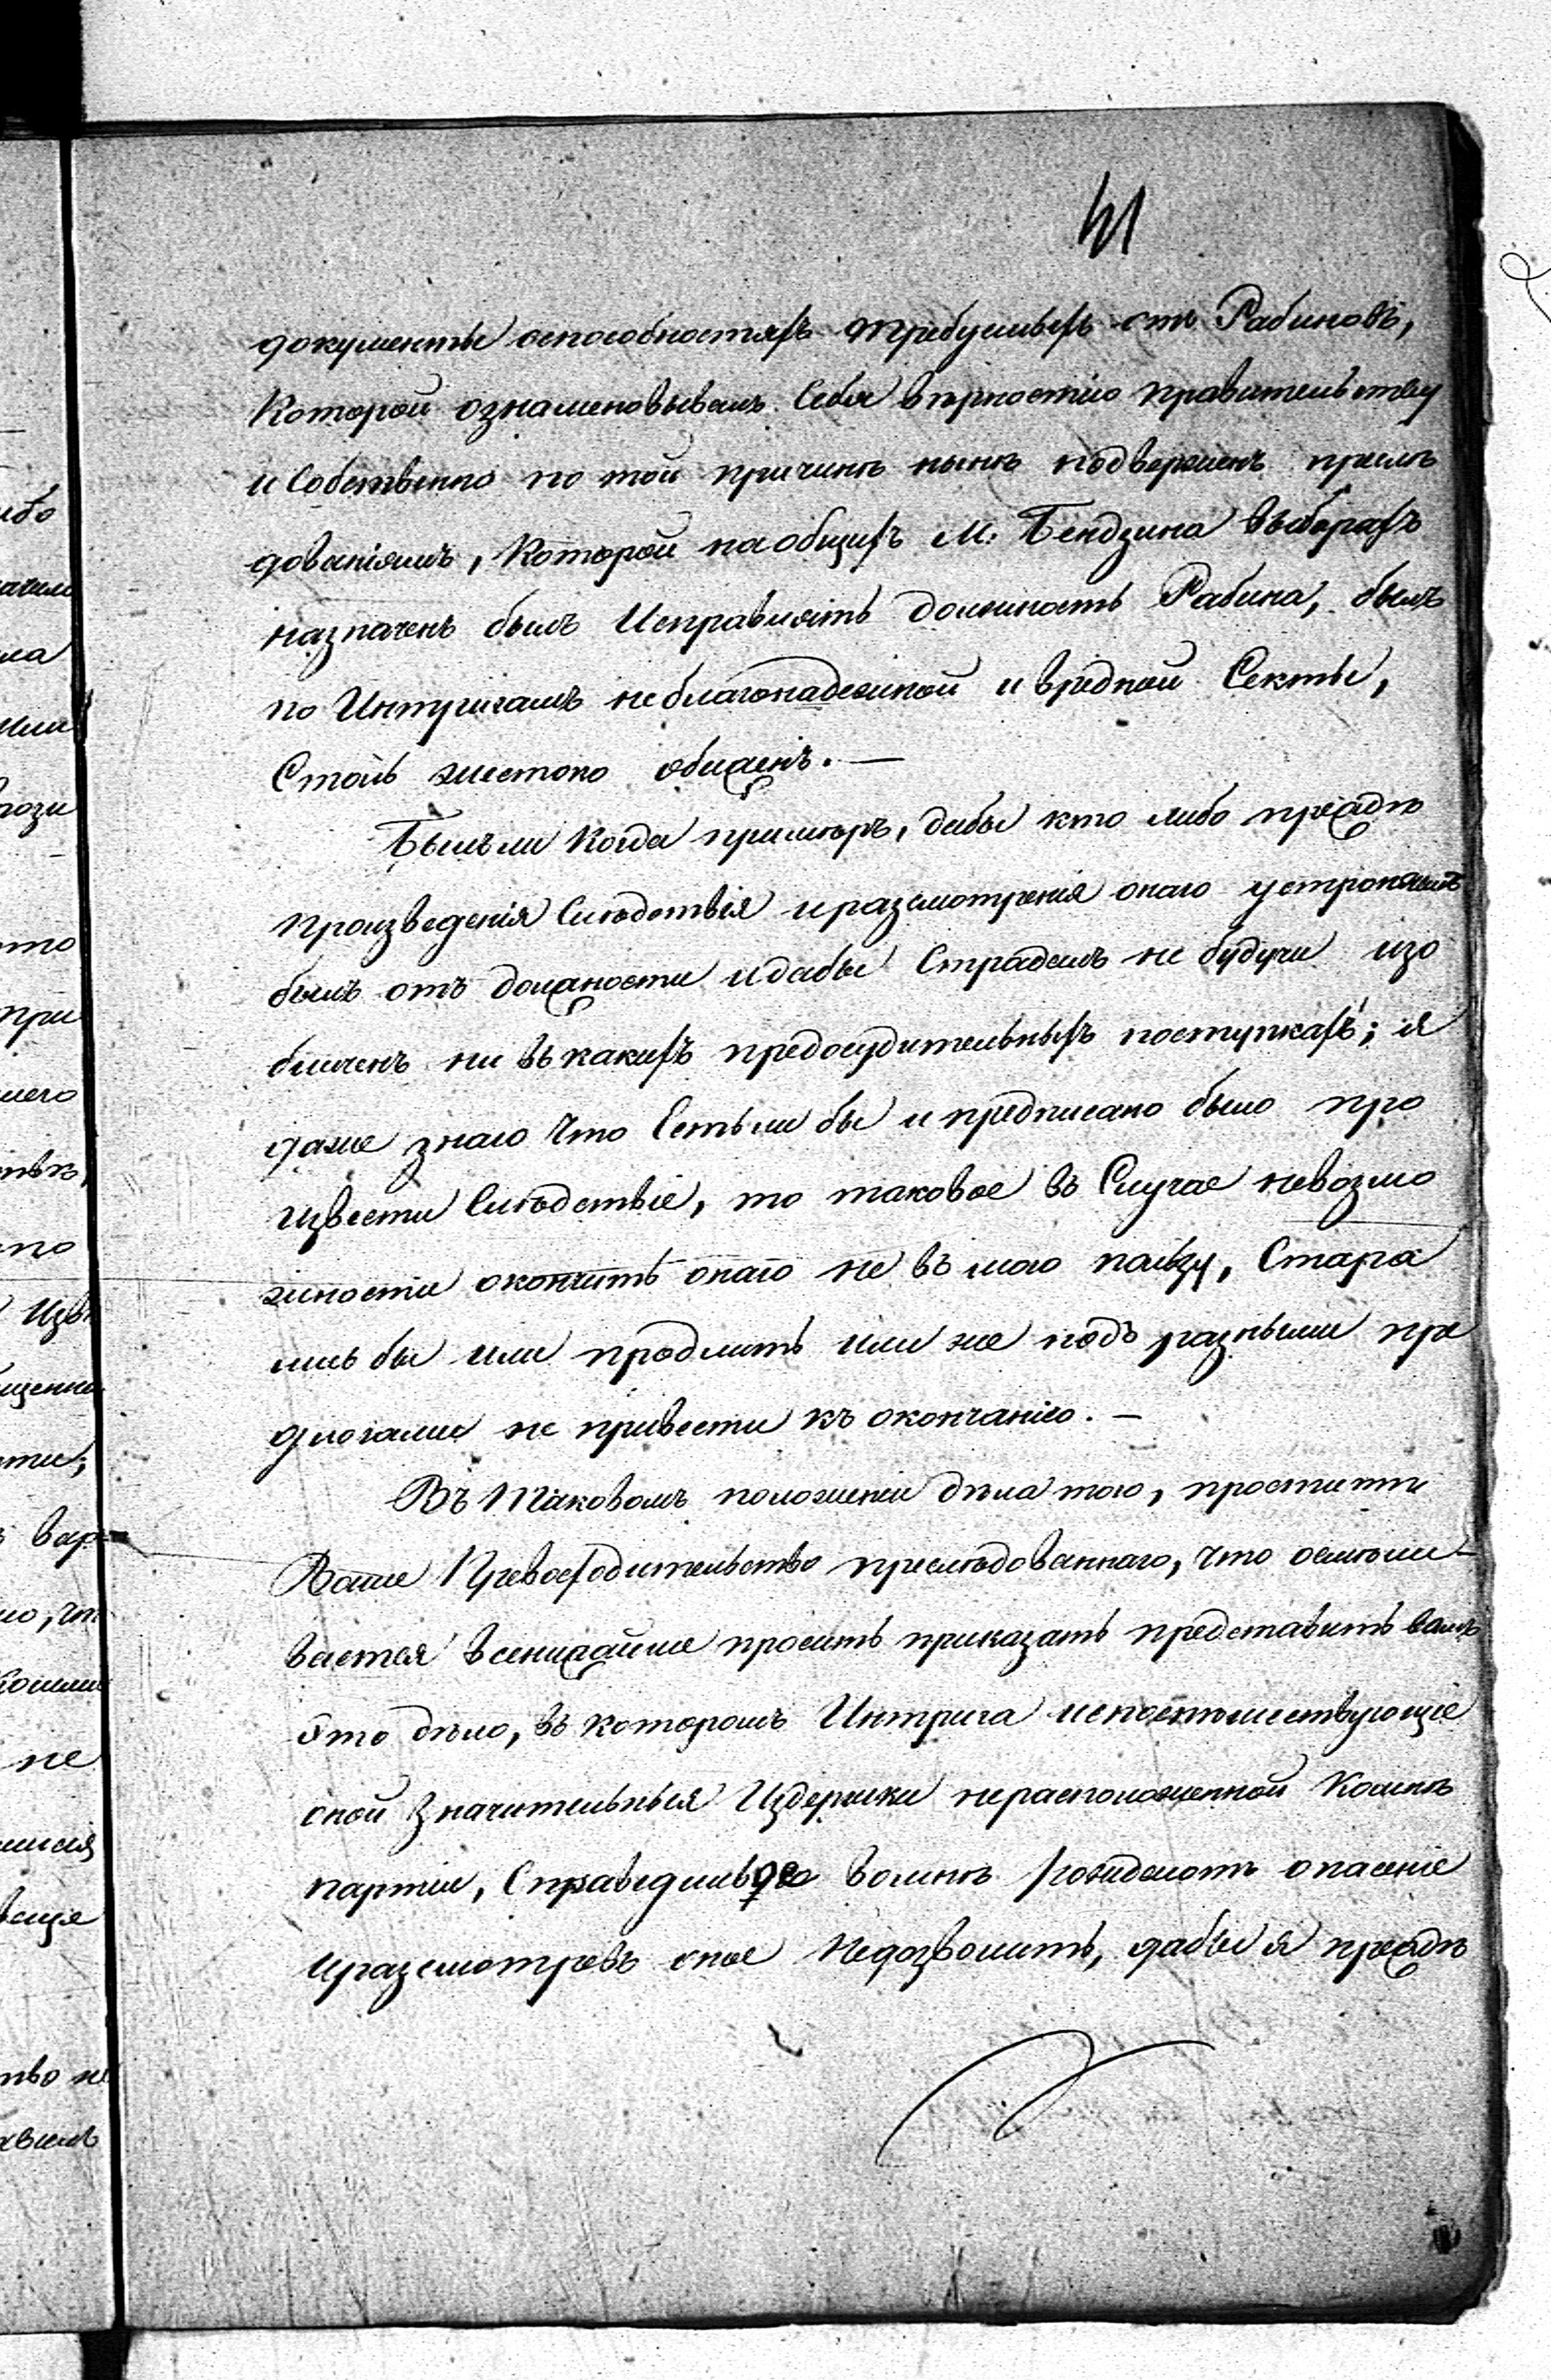 41
документы оспособностяхъ требуемыхъ отъ Рабиновъ,
Которой ознаменовывалъ Себя вѣрностію правительству
и Собственно по той причинѣ нынѣ подверженъ преслѣ
дованіямъ, Которой на общихъ М. Бендзина выборахъ
назначенъ былъ Исправлять должность Рабина, былъ
по Интригамъ неблагонадежной и вредной Секты,
Столь жестоко обиженъ. —
Былъ ли Когда примѣръ, дабы кто либо прежде
произведенія Слѣдствія и разсмотренія онаго устроняемъ
былъ отъ должности и дабы Страдалъ не будучи изо
бличенъ ни въ какихъ предосудительныхъ поступкахъ; я
даже знаю Что Естьли бы и предписано было про
извести Слѣдствіе, то таковое въ Случае невозмо
жности окончить онаго не въ мою пользу, Стара
лись бы или продлить или же подъ разными пре
длогами не привести къ окончанію. —
Въ Таковомъ положеніи дѣла того, простите
Ваше Превосходительство преслѣдованнаго, Что осмѣли-
вается всенижайше просить приказать представить вамъ
Это дѣло, въ которомъ Интрига
оной Значительныя Издержки нерасположенной Комнѣ
партіи, во мнѣ опасеніе
и разсмотревъ оное Недозволить, дабы я прежде
ибо
то
при
по
не